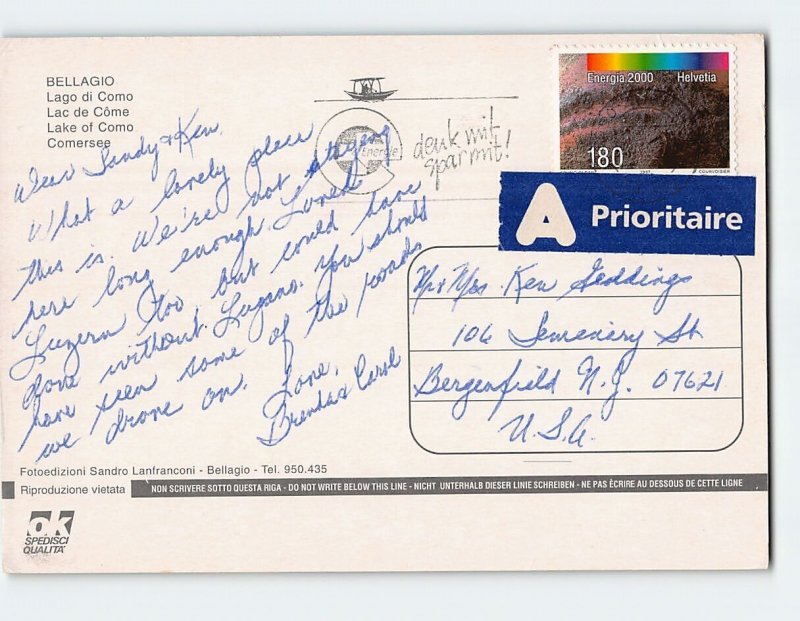 BELLAGIO
Lago di Como
Lac de Côme
Lake of Como
Comersee
Energie
denk mit
spar mit!
Energia 2000 Helvetia
180
1997 COURVOISIER
A Prioritaire
Dear Sandy & Ken,
What a lovely place
this is. We're not staying
here long enough. Loved
Luzern too, but could have
done without Lugano. You should
have seen some of the roads
we drove on.
Love,
Brenda & Carol
Mr & Mrs. Ken Geddings
106 St
Bergenfield N.J. 07621
U.S.A.
Fotoedizioni Sandro Lanfranconi - Bellagio - Tel. 950.435
Riproduzione vietata
NON SCRIVERE SOTTO QUESTA RIGA - DO NOT WRITE BELOW THIS LINE - NICHT UNTERHALB DIESER LINIE SCHREIBEN - NE PAS ÉCRIRE AU DESSOUS DE CETTE LIGNE
ok
SPEDISCI
QUALITA'